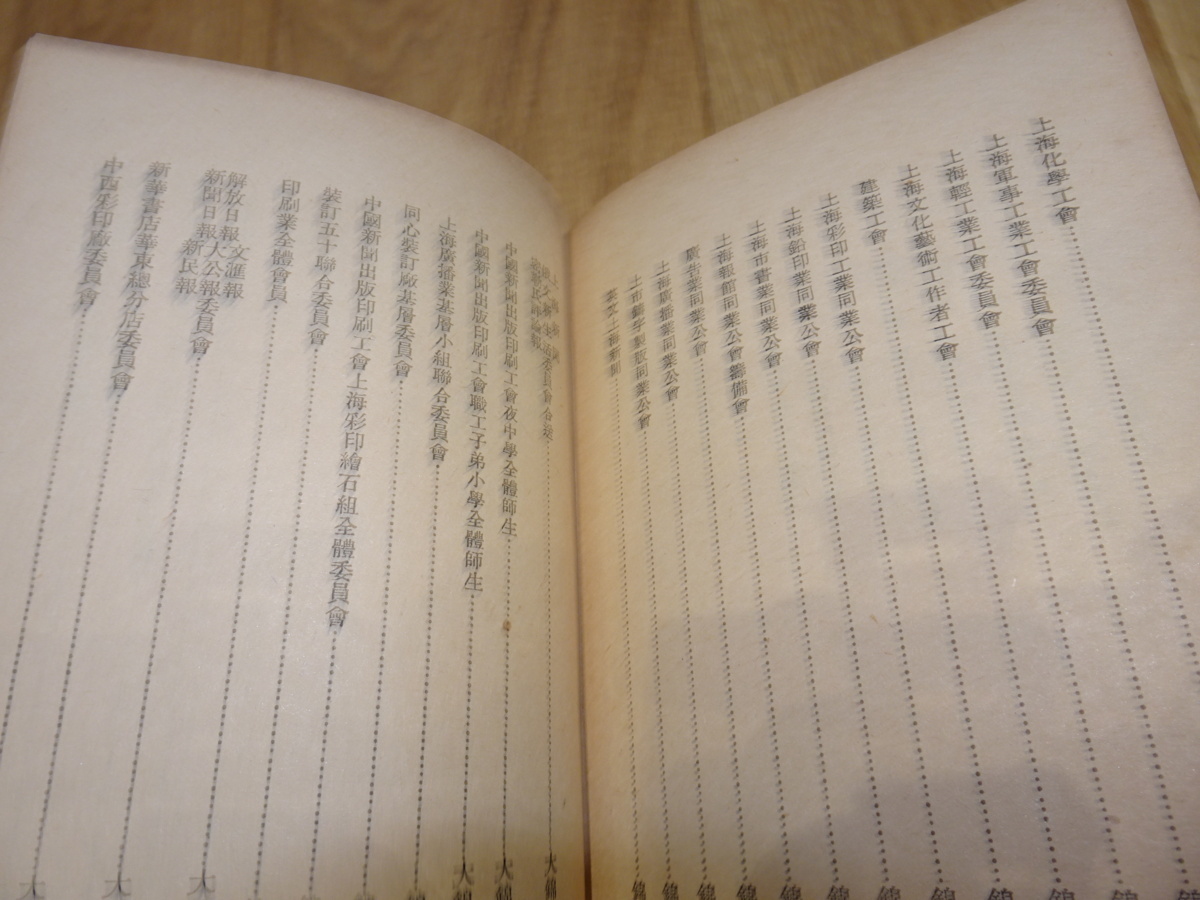 上海化學工會
上海軍事工業工會委員會
上海輕工業工會委員會
上海文化藝術工作者工會
建築工會
上海彩印工業同業公會
上海鉛印業同業公會
上海市書業同業公會
上海報館同業公會籌備會
廣告業同業公會
上海廣播業同業公會
同業公會
中國新聞出版印刷工會夜中學全體師生 大錦
中國新聞出版印刷工會職工子弟小學全體師生 大錦
上海廣播業基層小組聯合委員會
同心裝訂廠基層委員會
中國新聞出版印刷工會上海彩印繪石組全體委員會
裝訂五十聯合委員會
印刷業全體會員
解放日報 文滙報
新聞日報 大公報 委員會
新民報
新華書店華東總分店委員會
中西彩印廠委員會